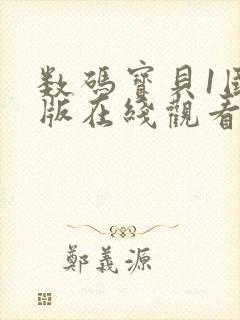 数碼寶貝1國
版在綫觀看
鄭義源